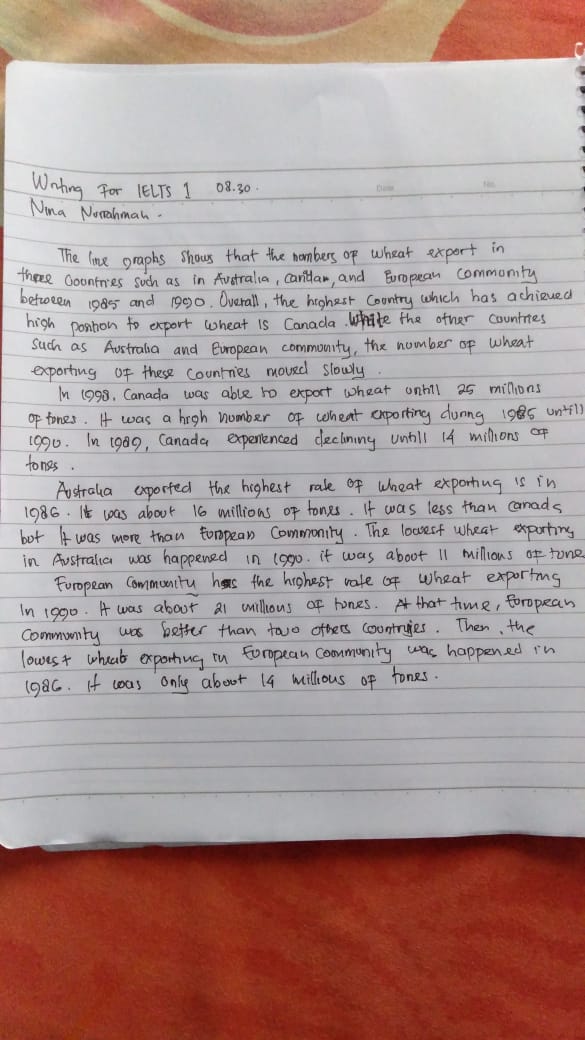 Writing For IELTS 1 08.30.
Date No.
Nina Nurrahmah.
The line graphs shows that the numbers of wheat export in
three Countries such as in Australia, Candan, and European Community
between 1985 and 1990. Overall, the highest Country which has achieved
high position to export wheat is Canada. While the other Countries
such as Australia and European community, the number of wheat
exporting of these Countries moved slowly.
In 1998, Canada was able to export wheat until 25 millions
of tones. It was a high number of wheat exporting during 1985 untill
1990. In 1989, Canada experienced declining untill 14 millions of
tones.
Australia exported the highest rate of wheat exporting is in
1986. It was about 16 millions of tones. It was less than Canada
but it was more than European Community. The lowest wheat exporting
in Australia was happened in 1990. it was about 11 millions of tone
European Community has the highest rate of wheat exporting
in 1990. It was about 21 millions of tones. At that time, European
Community was better than two others countries. Then, the
lowest wheat exporting in European Community was happened in
1986. it was only about 14 millions of tones.